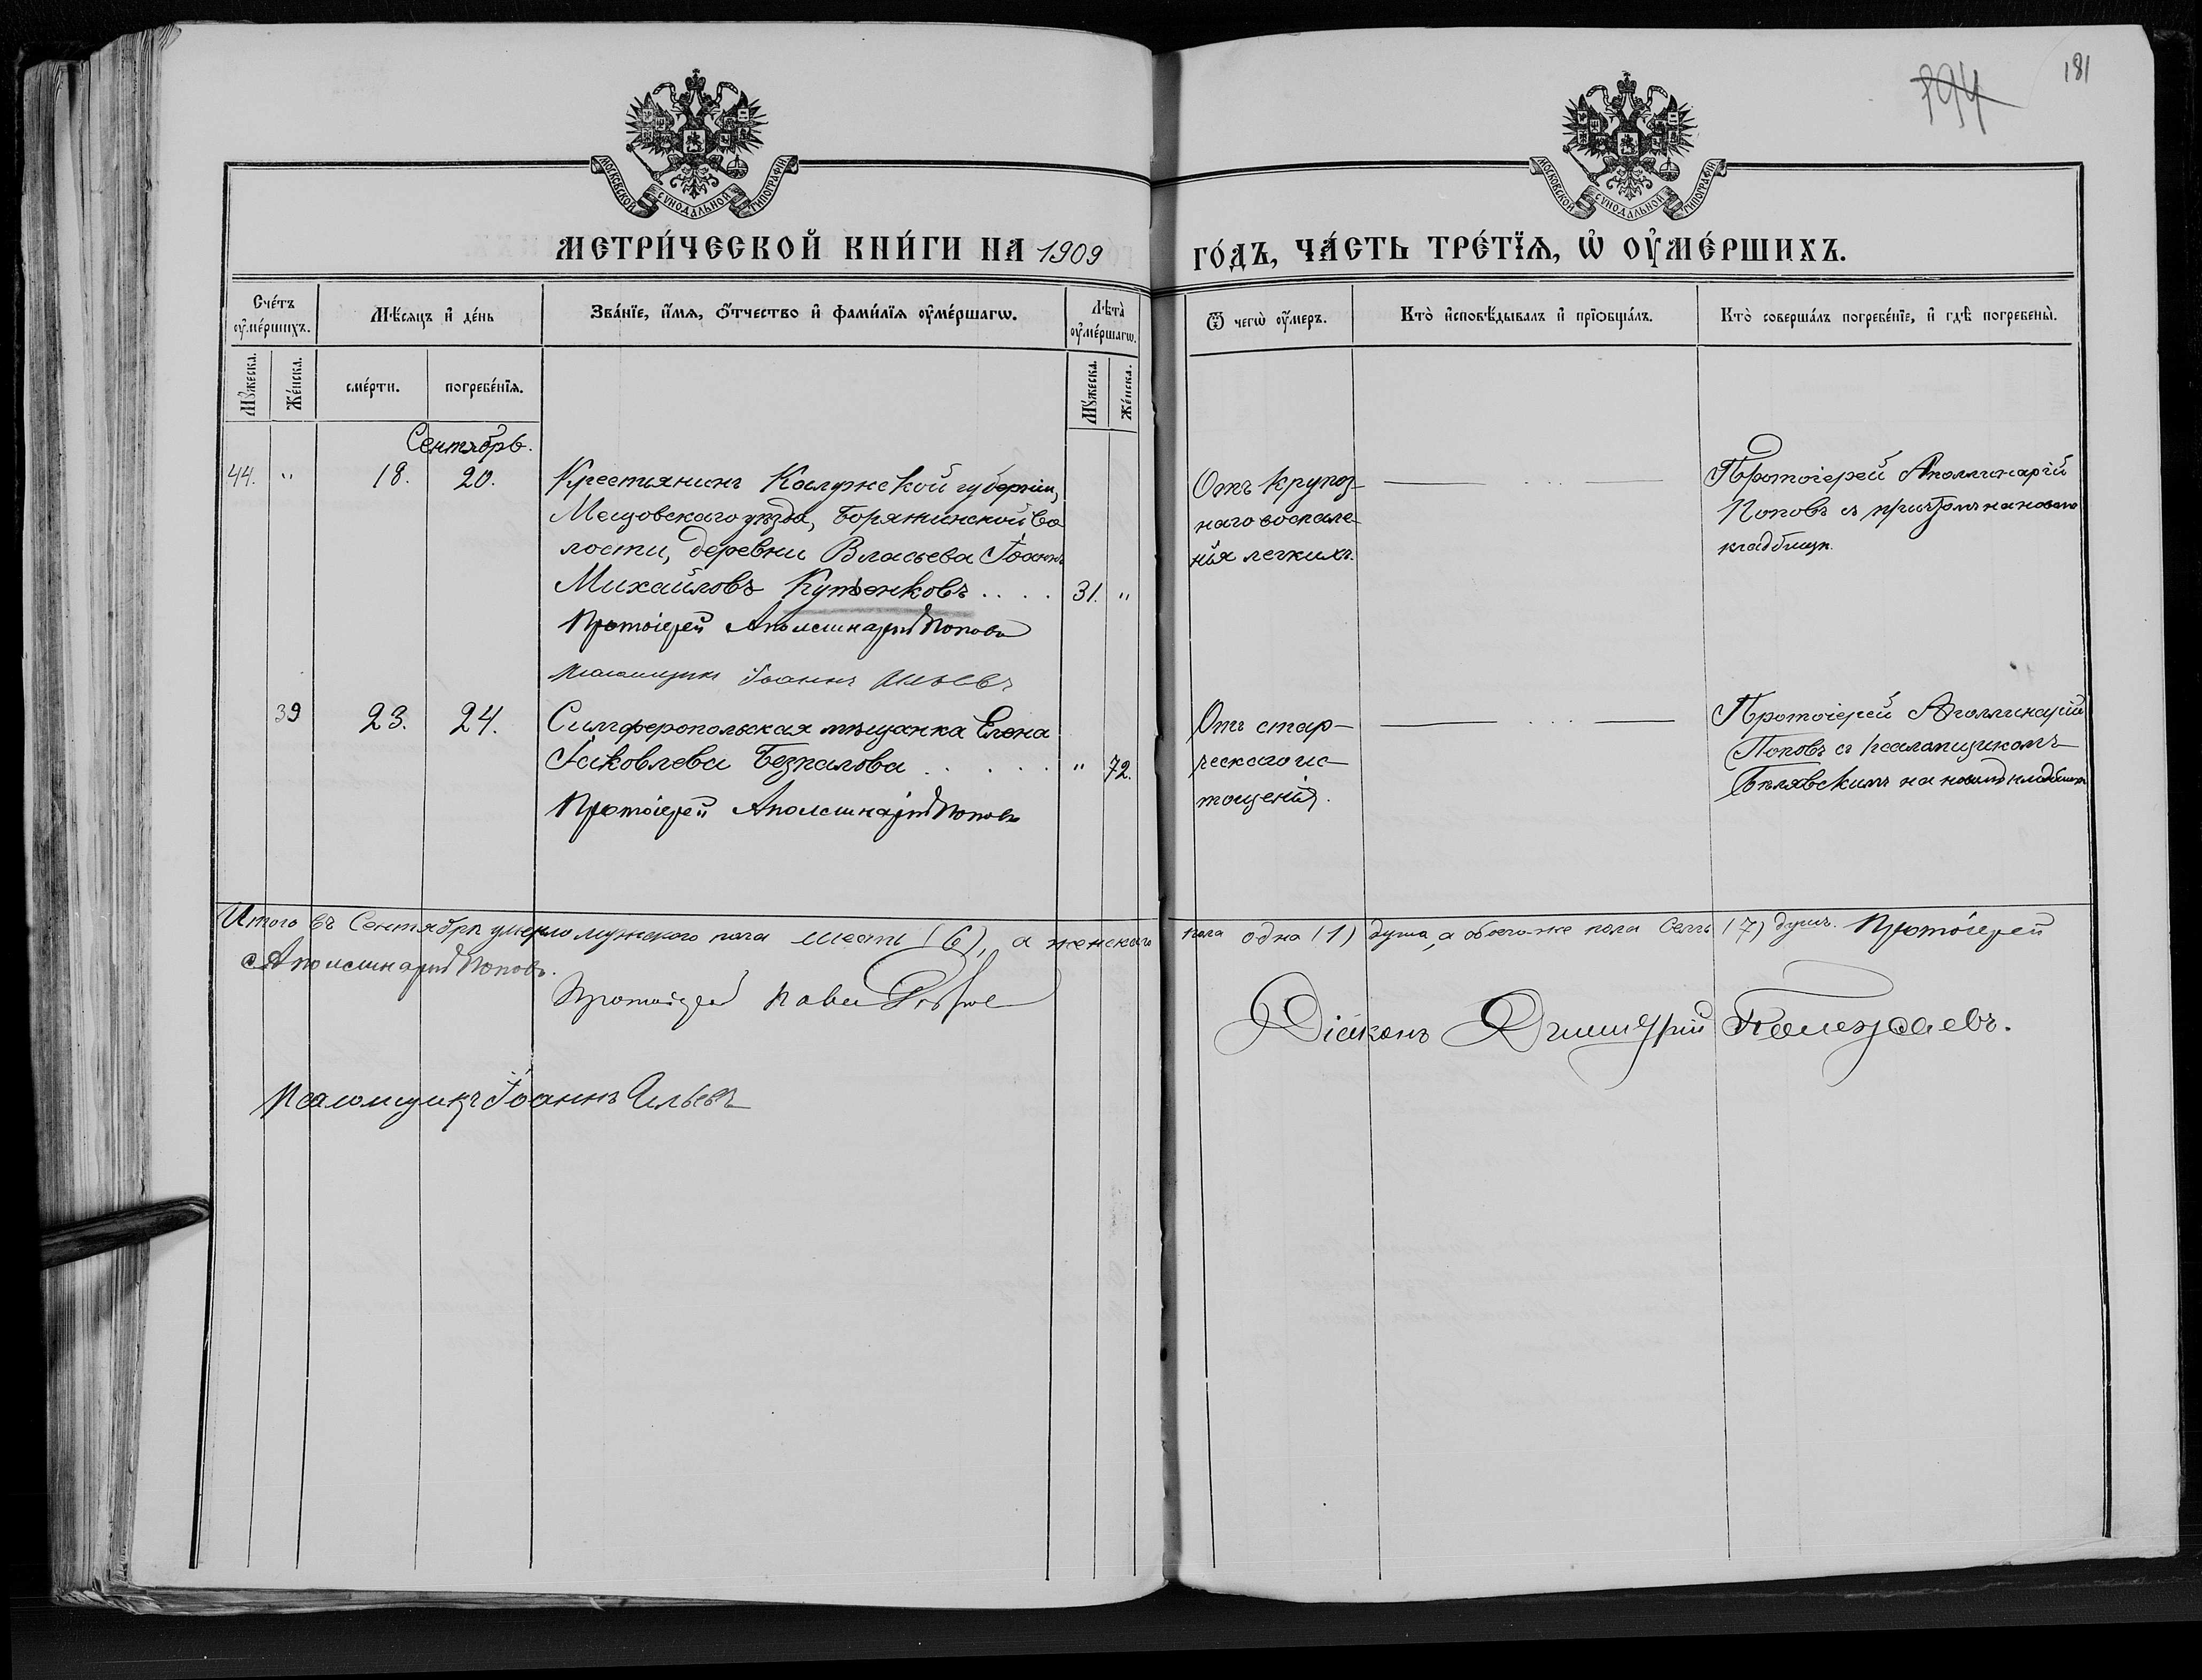 194
181
МОСКОВСКОЙ СѴНОДАЛЬНОЙ ТИПОГРАФІИ
МОСКОВСКОЙ СѴНОДАЛЬНОЙ ТИПОГРАФІИ
МЕТРИ́ЧЕСКОЙ КНИ́ГИ НА 1909
ГО́ДЪ, ЧА́СТЬ ТРЕ́ТЇѦ, Ѡ҆ ОУ҆МЕ́РШИХЪ.
Сче́тъ оу҆ме́ршихъ.
Мꙋ́жеска.
Же́нска.
Мѣ́сѧцъ и҆ де́нь
сме́рти.
погребе́нїѧ.
Зва́нїе, и҆́мѧ, ѻ҆́тчество и҆ фами́лїѧ оу҆ме́ршагѡ.
Лѣта̀ оу҆ме́ршагѡ.
Мꙋ́жеска.
Же́нска.
Ѿ чегѡ̀ оу҆́меръ.
Кто̀ и҆сповѣ́дывалъ и҆ прїѡбща́лъ.
Кто̀ соверша́лъ погребе́нїе, и҆ гдѣ̀ погребены̀.
Сентябрь.
44. " 18. 20.
Крестьянинъ Калужской губерніи,
Мещовскаго уѣзда, Борятинской во
лости, деревни Власьева Іоаннъ
Михайловъ Кутенковъ . . . . 31. "
Протоіерей Аполлинарій Поповъ
Псаломщикъ Іоаннъ Ильевъ
Отъ крупоз-
наго воспале-
нія легкихъ.
Протоіерей Аполлинарій
Поповъ съ причтомъ на новомъ
кладбищѣ.
39 23. 24.
Симферопольская мѣщанка Елена
Іаковлева Безпалова . . . . . " 72.
Протоіерей Аполлинарій Поповъ
Отъ стар-
ческаго ис-
тощенія.
Протоіерей Аполлинарій
Поповъ съ псаломщикомъ
Бѣлявскимъ на новомъ кладбищѣ
Итого въ Сентябрѣ умерло мужского пола шесть (6), а женскаго пола одна (1) душа, а обоего-же пола семь (7) душъ. Протоіерей
Аполлинарій Поповъ.
Протоіерей Павелъ
Діаконъ Димитрій Полежаевъ.
Псаломщикъ Іоаннъ Ильевъ